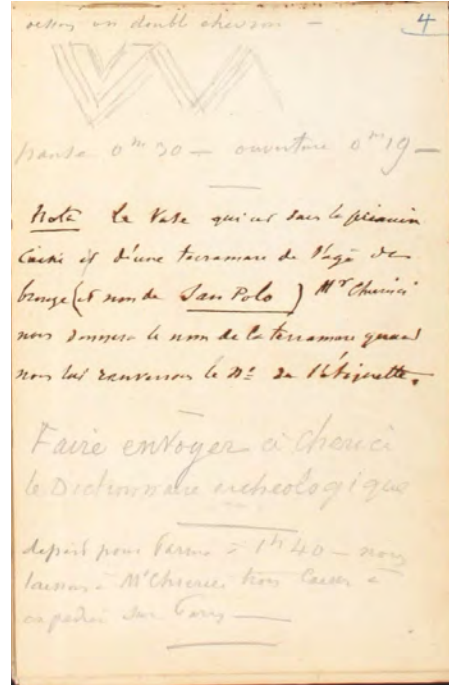 4
en double chevron —
panse 0m 30 — ouverture 0m 19 —
Nota Le Vase qui est dans la
est d'une terramare de l'age de
bronze (et non de San Polo) Mr Chierici
nous donnera le nom de la terramare quand
nous lui renverrons le No de l'étiquette.
Faire envoyer à Chierici
le Dictionnaire archeologique
depart pour Parme à 1h 40 — nous
laissons à Mr Chierici trois Caisses à
expedier sur Paris —